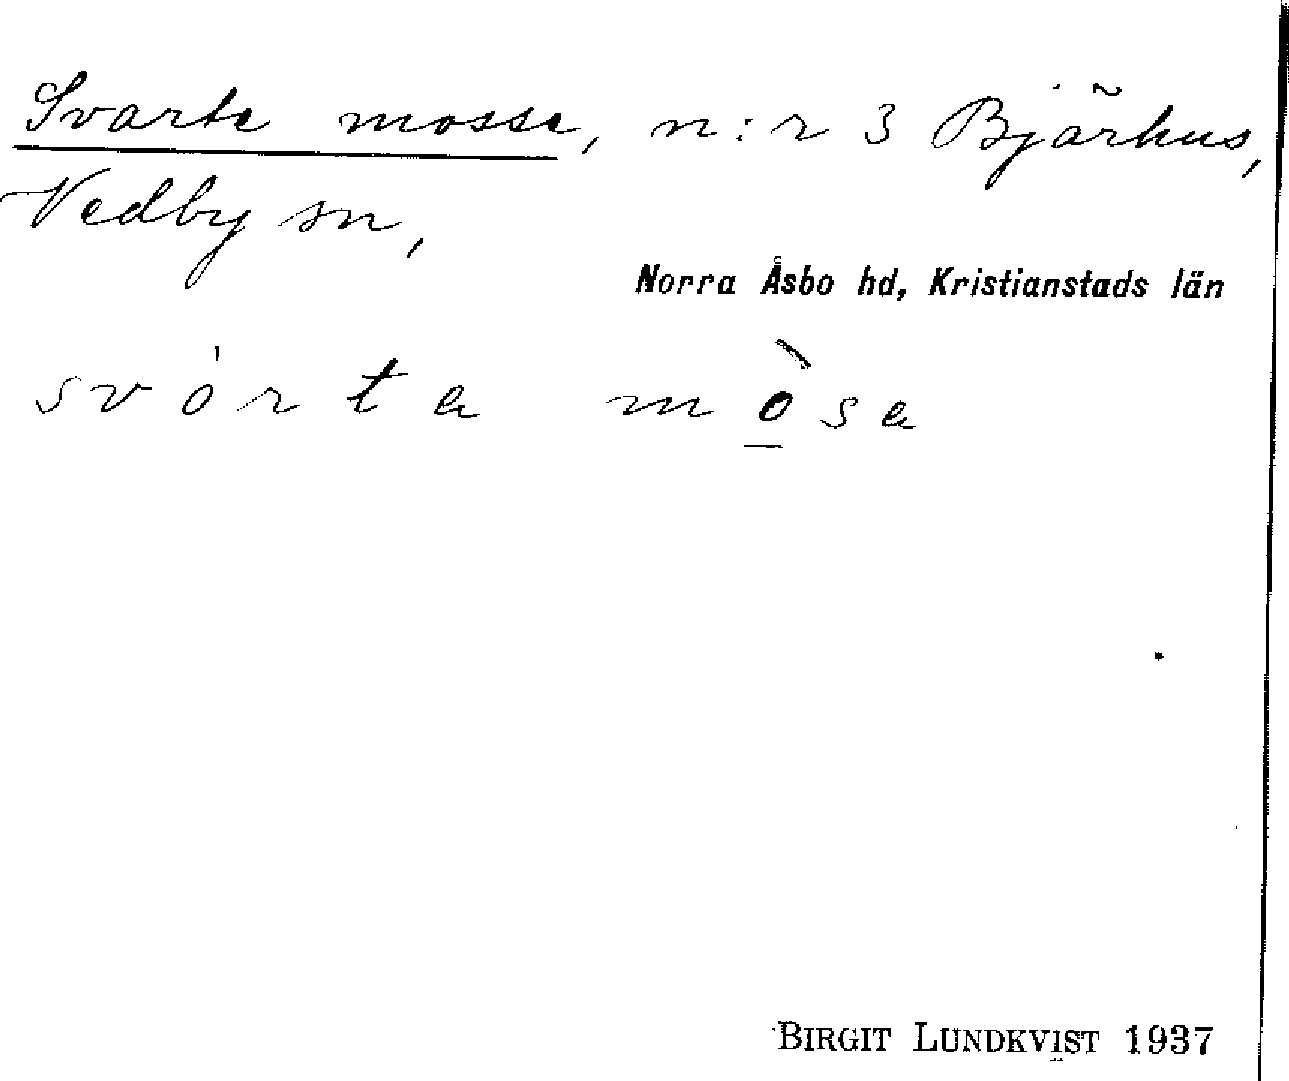 Svarte mosse, n:r 3 Bjärhus,
Vedby sn,
Norra Åsbo hd, Kristianstads län
svòrta mòsa
BIRGIT LUNDKVIST 1937